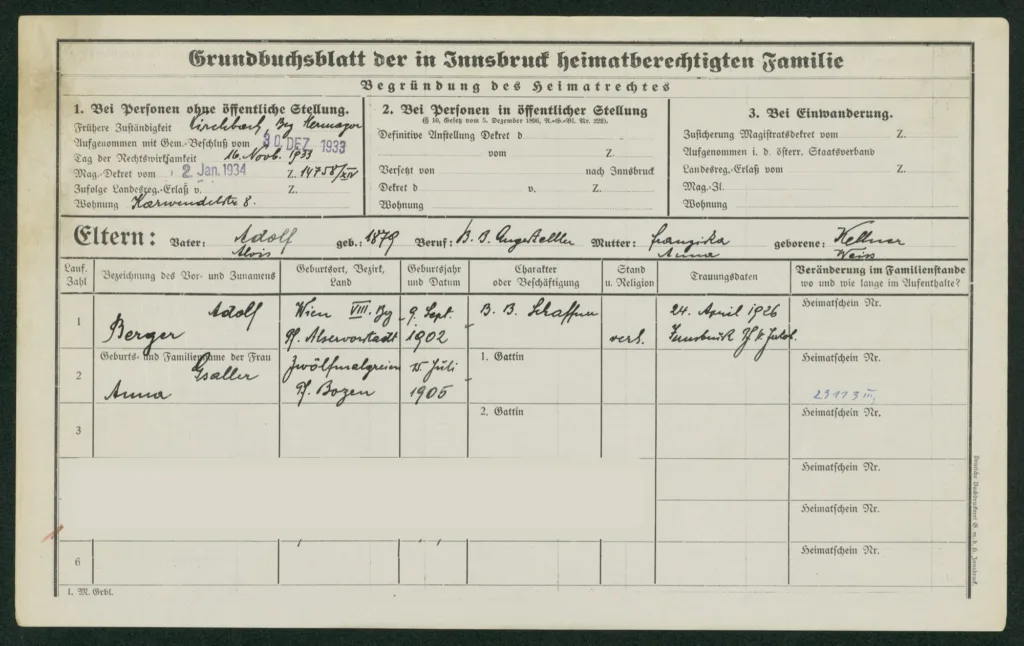 Grundbuchsblatt der in Innsbruck heimatberechtigten Familie
Begründung des Heimatrechtes
1. Bei Personen ohne öffentliche Stellung.
Frühere Zuständigkeit Kirchbach, Bez Hermagor
Aufgenommen mit Gem.-Beschluß vom 30. DEZ. 1933
Tag der Rechtswirksamkeit 16. Novb. 1933
Mag.-Dekret vom 2. Jan. 1934 Z. 14758/XIV
Zufolge Landesreg.-Erlaß v. Z.
Wohnung Karwendelstr 8.
2. Bei Personen in öffentlicher Stellung
(§ 10, Gesetz vom 5. Dezember 1896, R.-G.-Bl. Nr. 222).
Definitive Anstellung Dekret d
vom Z.
Versetzt von nach Innsbruck
Dekret d v. Z.
Wohnung
3. Bei Einwanderung.
Zusicherung Magistratsdekret vom Z.
Aufgenommen i. d. österr. Staatsverband
Landesreg.-Erlaß vom Z.
Mag.-Zl.
Wohnung
Eltern: Vater: Adolf geb.: 1879 Beruf: B. B. Angestellter Mutter: Franziska geborene: Kellner
Alois Anna Weiss
Lauf. Zahl
Bezeichnung des Vor- und Zunamens
Geburtsort, Bezirk, Land
Geburtsjahr und Datum
Charakter oder Beschäftigung
Stand u. Religion
Trauungsdaten
Veränderung im Familienstande
wo und wie lange im Aufenthalte?
Adolf Wien VIII. Bz 9. Sept. B. B. Schaffner 24. April 1926 Heimatschein Nr.
1 Berger Pf. Alservorstadt 1902 verh. Innsbruck Pf. St. Jakob.
Geburts- und Familienname der Frau 1. Gattin Heimatschein Nr.
2 Gsaller Zwölfmalgreien 15. Juli
Anna Pf. Bozen 1905 23173 III,
3 2. Gattin Heimatschein Nr.
Heimatschein Nr.
Heimatschein Nr.
6 Heimatschein Nr.
I. M. Grbl.
Deutsche Buchdruckerei G. m. b. H. Innsbruck